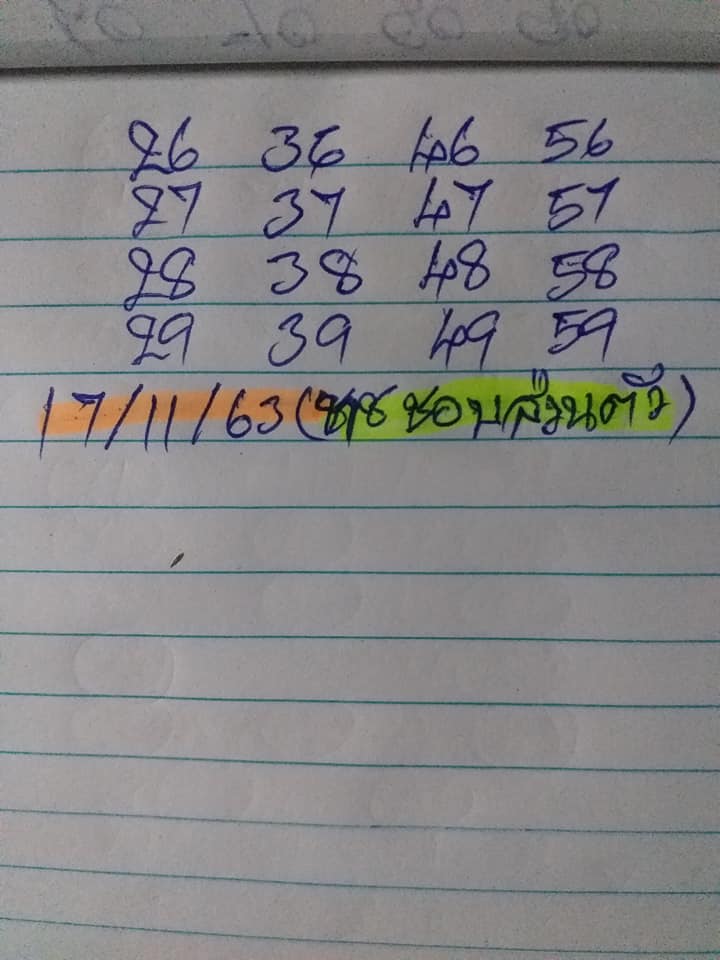 26 36 46 56
27 37 47 57
28 38 48 58
29 39 49 59
17/11/63 ( ชอบส่วนตัว)